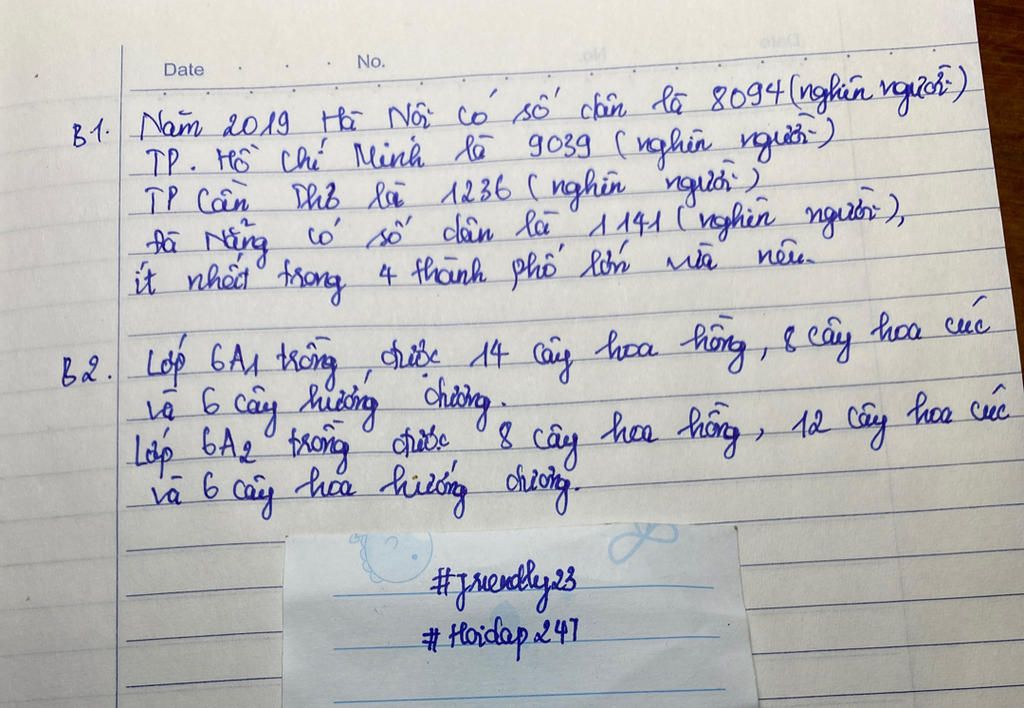 Date No.
B1. Năm 2019 Hà Nội có số dân là 8094 (nghìn người)
TP. Hồ Chí Minh là 9039 (nghìn người)
TP Cần Thơ là 1236 (nghìn người)
Đà Nẵng có số dân là 1141 (nghìn người),
ít nhất trong 4 thành phố lớn vừa nêu.
B2. Lớp 6A1 trồng được 14 cây hoa hồng, 8 cây hoa cúc
và 6 cây hướng dương.
Lớp 6A2 trồng được 8 cây hoa hồng, 12 cây hoa cúc
và 6 cây hoa hướng dương.
#friendly23
#Hoidap247